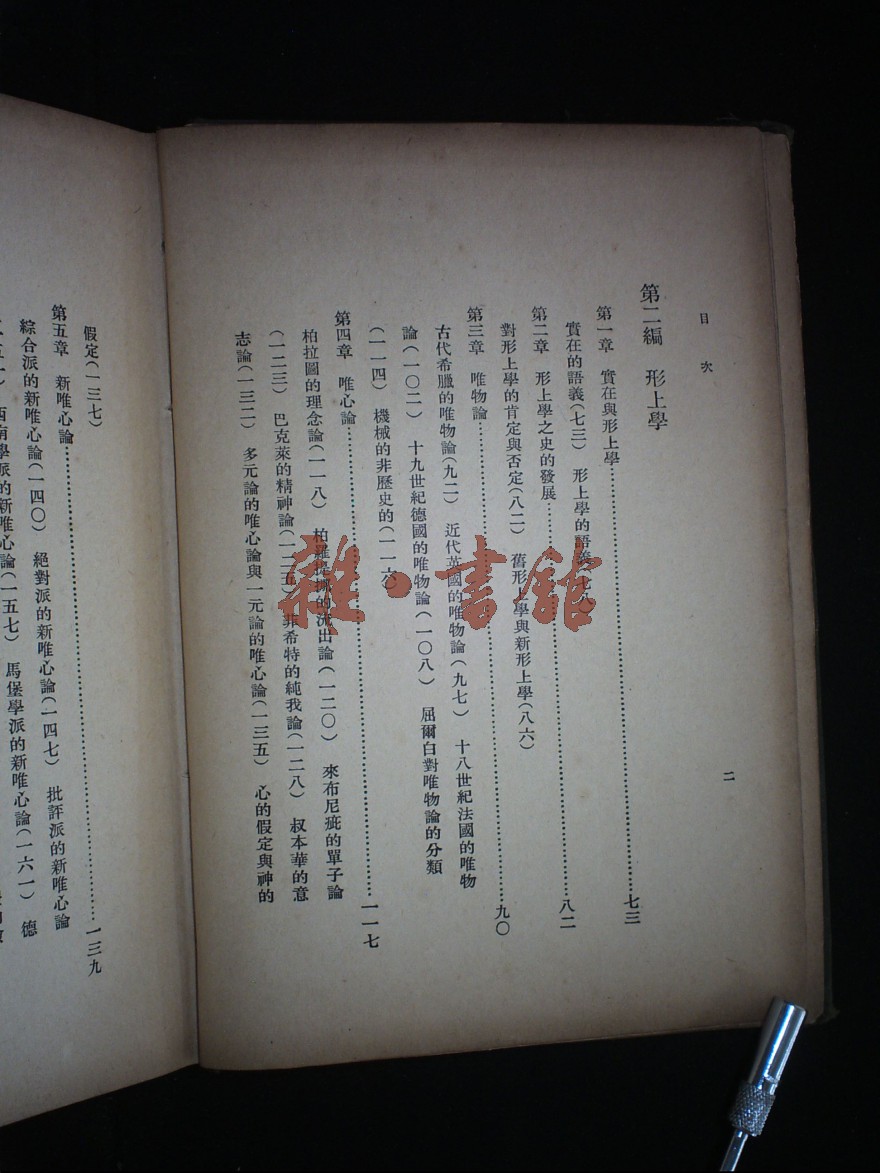 目次
二
第二編 形上學
第一章 實在與形上學……七三
實在的語義(七三) 形上學的語義(七八)
第二章 形上學之史的發展……八二
對形上學的肯定與否定(八二) 舊形上學與新形上學(八六)
第三章 唯物論……九〇
古代希臘的唯物論(九二) 近代英國的唯物論(九七) 十八世紀法國的唯物
論(一〇二) 十九世紀德國的唯物論(一〇八) 屈爾白對唯物論的分類
(一一四) 機械的非歷史的(一一六)
第四章 唯心論……一一七
柏拉圖的理念論(一一八) 柏羅提挪的流出論(一二〇) 來布尼疵的單子論
(一二三) 巴克萊的精神論(一二五) 菲希特的純我論(一二八) 叔本華的意
志論(一三二) 多元論的唯心論與一元論的唯心論(一三五) 心的假定與神的
假定(一三七)
第五章 新唯心論……一三九
綜合派的新唯心論(一四〇) 絕對派的新唯心論(一四七) 批評派的新唯心論
西南學派的新唯心論(一五七) 馬堡學派的新唯心論(一六一) 德
雜·書館